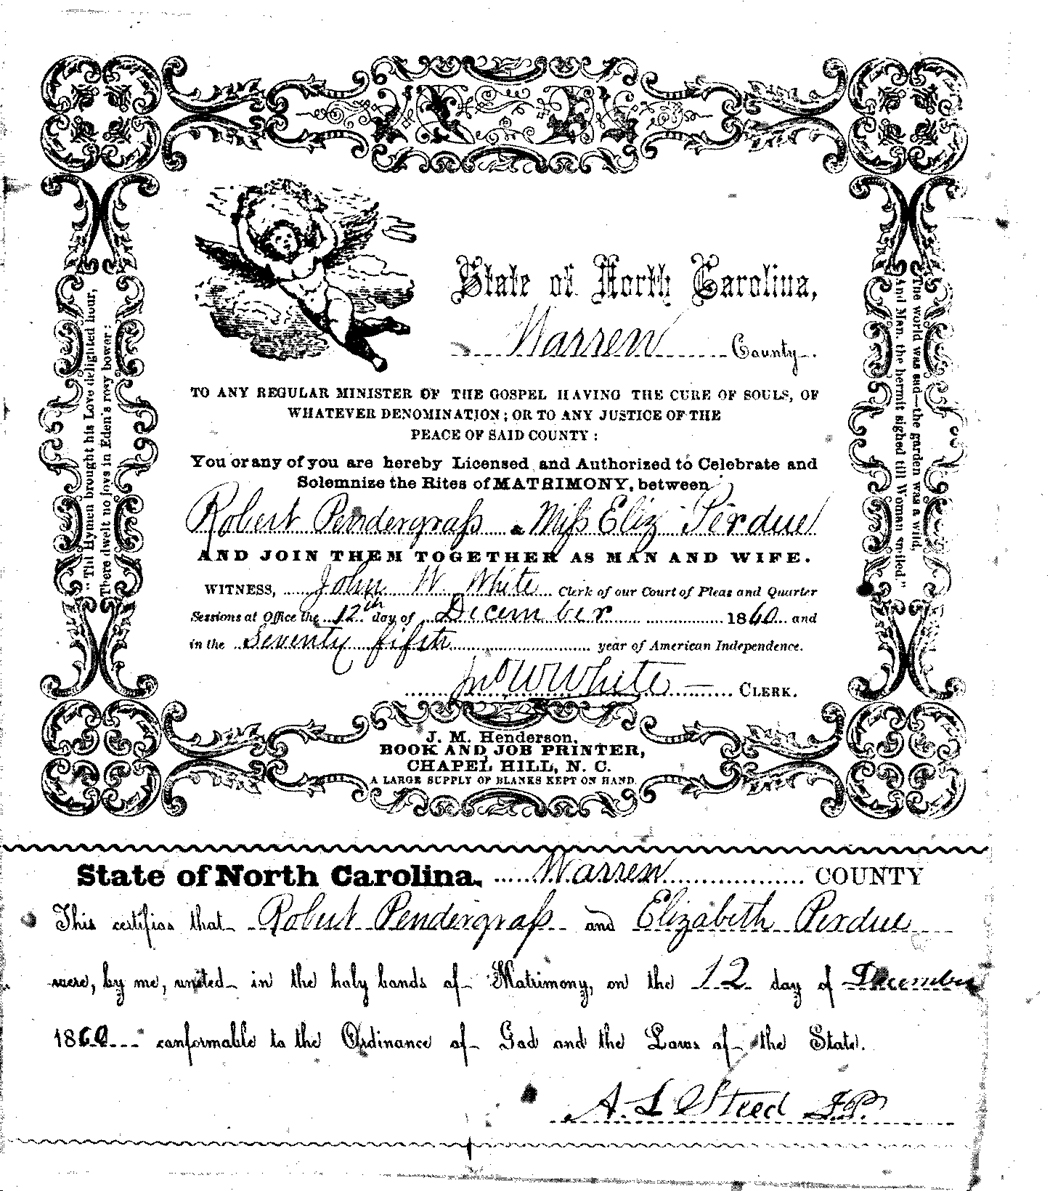 State of North Carolina,
Warren County.
TO ANY REGULAR MINISTER OF THE GOSPEL HAVING THE CURE OF SOULS, OF
WHATEVER DENOMINATION; OR TO ANY JUSTICE OF THE
PEACE OF SAID COUNTY:
You or any of you are hereby Licensed and Authorized to Celebrate and
Solemnize the Rites of MATRIMONY, between
Robert Pendergrass & Miss Eliz Perdue
AND JOIN THEM TOGETHER AS MAN AND WIFE.
WITNESS, John W. White Clerk of our Court of Pleas and Quarter
Sessions at Office the 12th day of December 1860 and
in the Seventy fifth year of American Independence.
Jno W White CLERK.
"Till Hymen brought his Love delighted hour,
There dwelt no joys in Eden's rosy bower:
The world was sad—the garden was a wild,
And Man, the hermit sighed till Woman smiled"
J. M. Henderson,
BOOK AND JOB PRINTER,
CHAPEL HILL, N. C.
A LARGE SUPPLY OF BLANKS KEPT ON HAND.
State of North Carolina, Warren COUNTY
This certifies that Robert Pendergrass and Elizabeth Perdue
were, by me, united in the holy bands of Matrimony, on the 12 day of December
1860 conformable to the Ordinance of God and the Laws of the State.
A. L. Steed J.P.